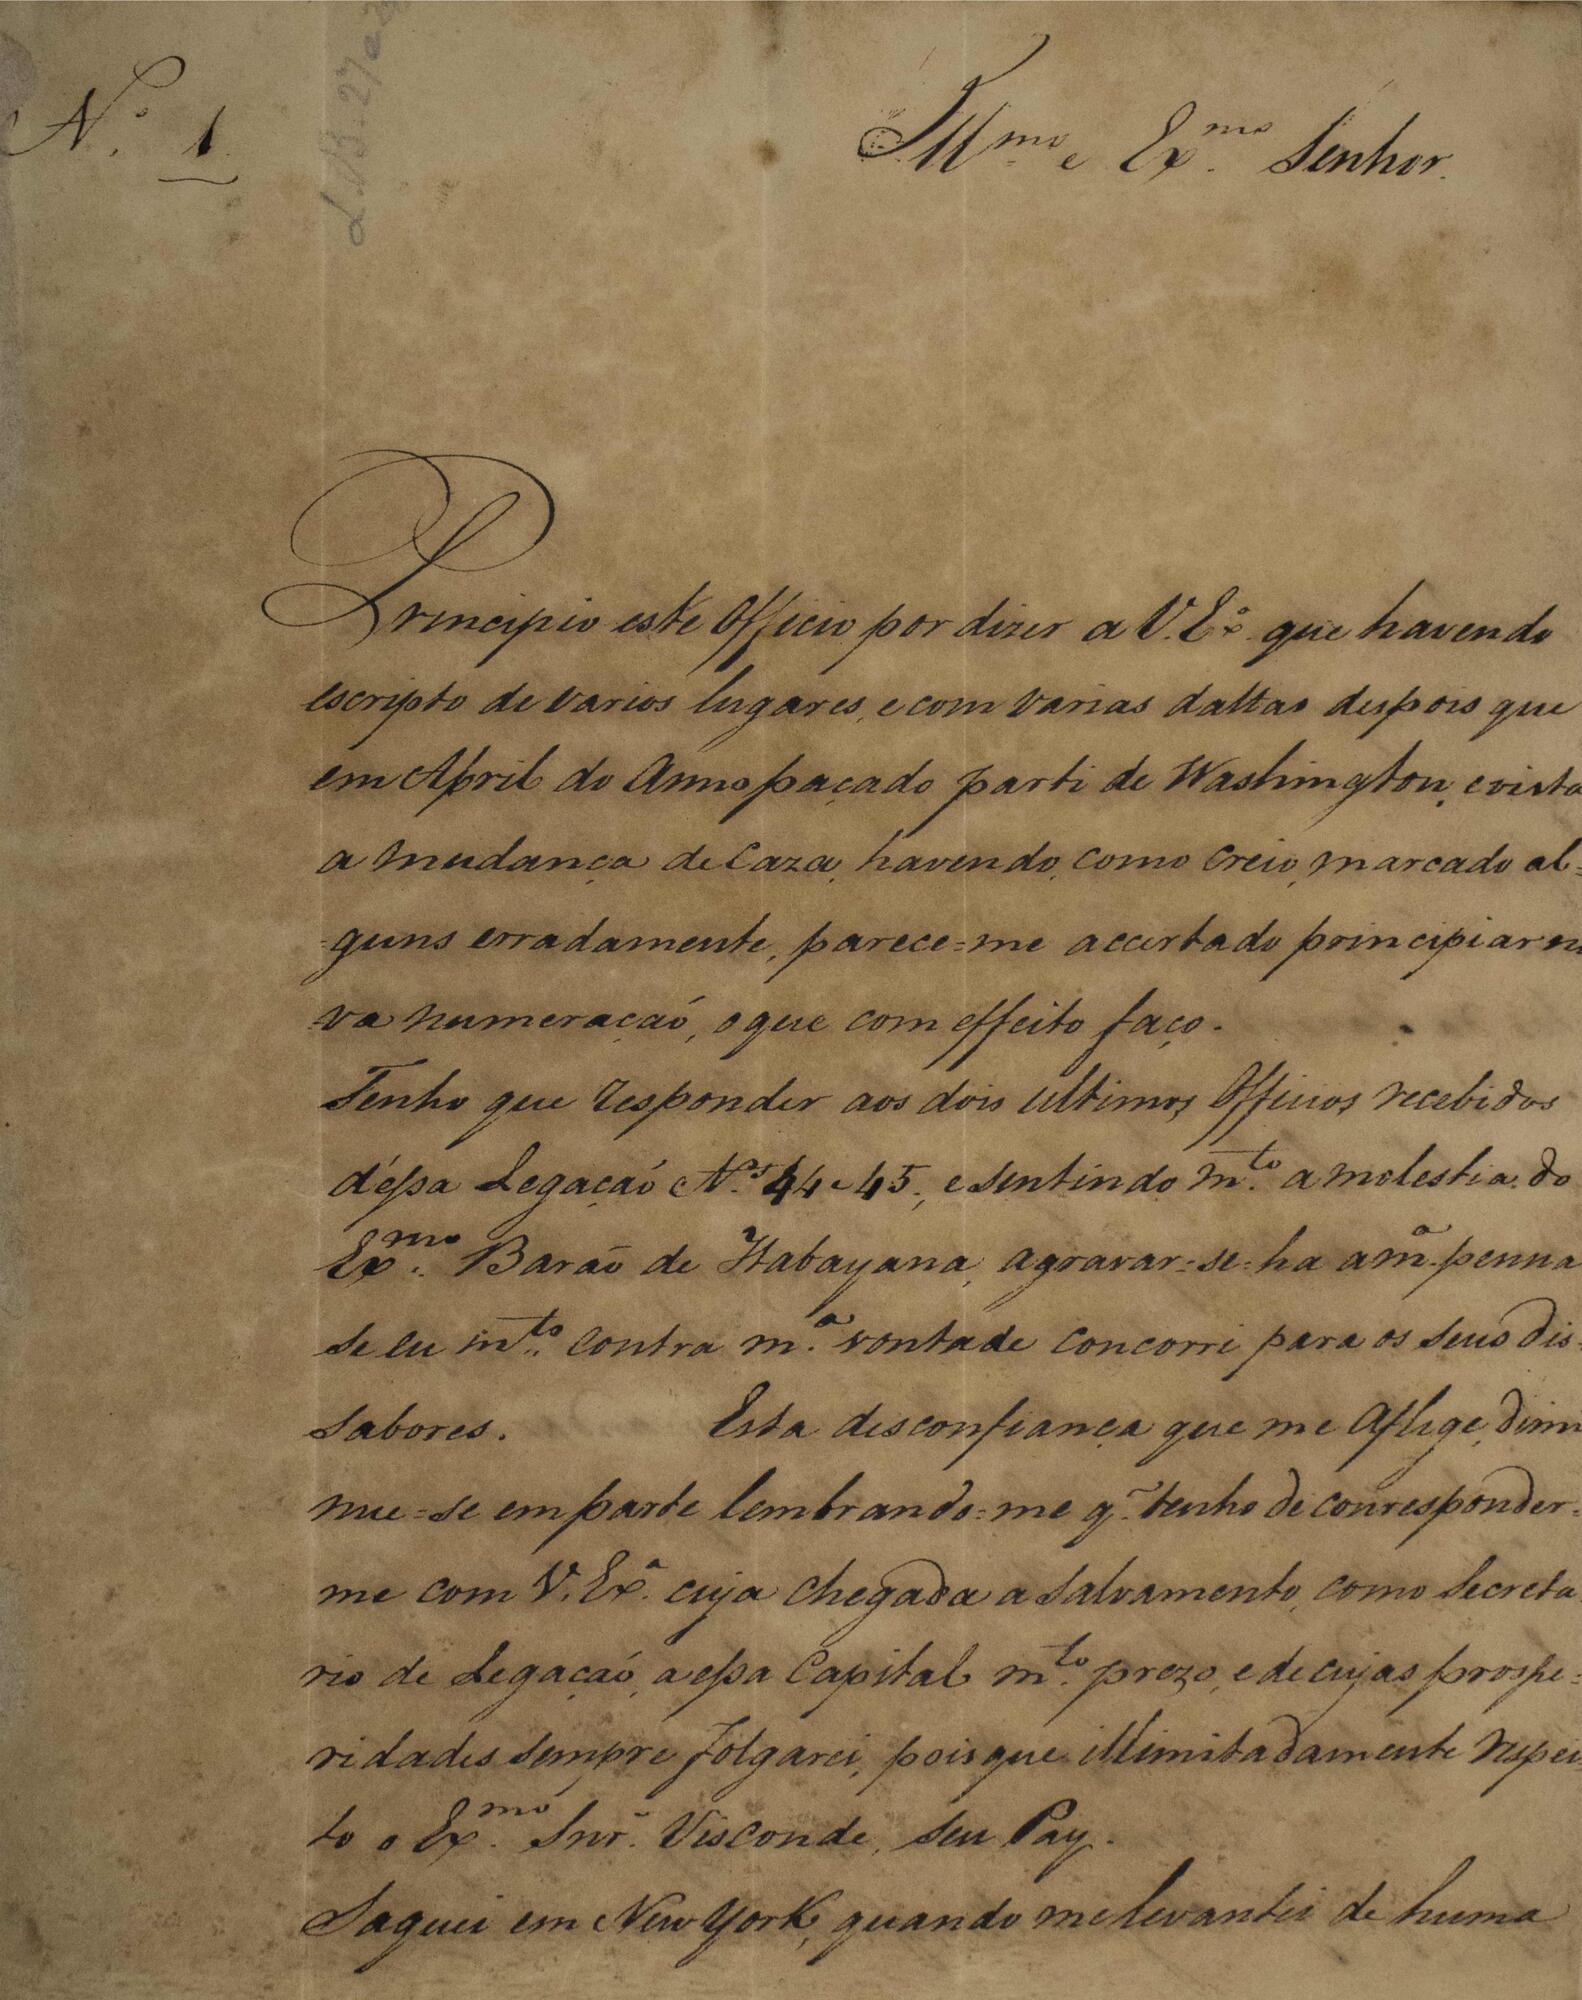 N.º 1
Ill.mo e Ex.mo Senhor.
Principio este Officio por dizer a V. Ex.ª que havendo
escripto de varios lugares, e com varias dattas depois que
em Abril do Anno paçado parti de Washington, e vista
a mudança de Caza, havendo, como creio, marcado al=
=guns erradamente, parece=me accertado principiar
va numeraçaó, o que com effeito faço.
Tenho que responder aos dois ultimos Officios recebidos
d'éssa Legaçaó N.os 44 e 45, e sentindo m.to a molestia do
Ex.mo Baraõ de Itabayana, agravar=se=ha a m.ª penna
se eu m.to contra m.ª vontade concorri para os seus dis=
sabores. Esta desconfiança que me aflige, dimi
nue=se em parte lembrando=me q.~ tenho de conresponder=
me com V. Ex.ª cuja chegada a salvamento, como Secreta
rio de Legaçaó, a essa Capital m.to prezo, e de cujas prospe=
ridades sempre folgarei, pois que illimitadamente respei
to o Ex.mo Snr. Visconde, seu Pay.
Saquei em New York, quando me levantei de huma